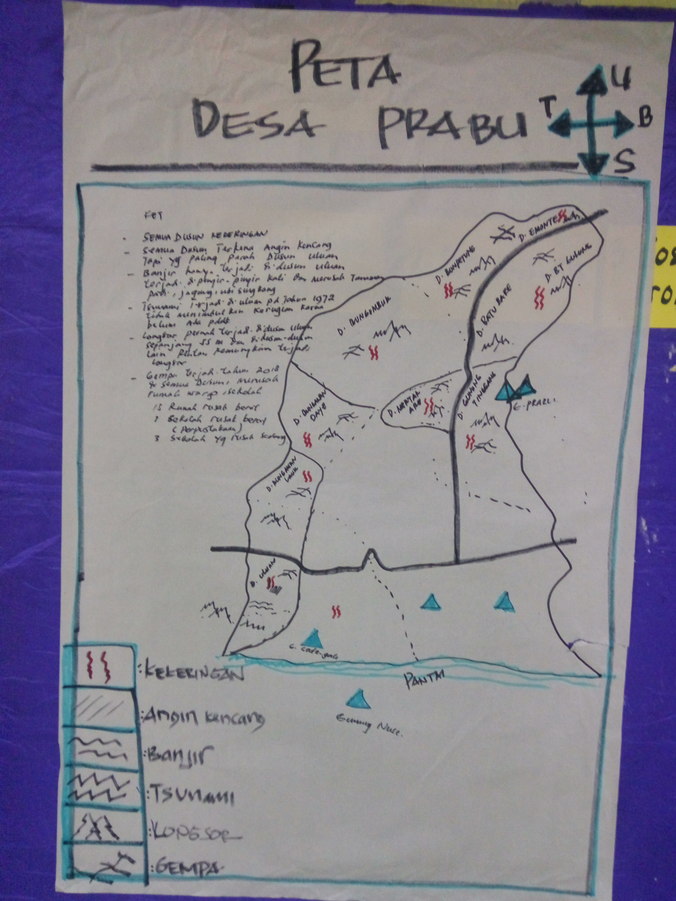 PETA
DESA PRABU
U
T
B
S
KET
- SEMUA DUSUN KEKERINGAN
- SEMUA DUSUN TERKENA ANGIN KENCANG
TAPI YG PALING PARAH DUSUN ULUAN
- Banjir hanya terjadi di dusun uluan
terjadi di pinggir-pinggir kali dan merusak tanaman
padi, jagung, ubi singkong
- Tsunami terjadi di uluan pd tahun 1972
tidak menimbulkan kerugian karna
belum ada pddk
- Longsor pernah terjadi di dusun uluan
sepanjang 55 m dan di dusun-dusun
lain rentan kemungkinan terjadi
longsor
- Gempa terjadi tahun 2018
di semua dusun, merusak
rumah warga, sekolah
Rumah rusak berat
Sekolah rusak berat
(Perpustakaan)
3 Sekolah yg rusak sedang
D. EMONTE
D. BUNPETUNG
D. BT GULUNG
D. BATU RAPE
D. DUNGEMBUK
D. GUNUNG TINGGANG
G. PRABU
D. DAYE
D. LAUK
D. ULUAN
PANTAI
Gunung
: KEKERINGAN
: ANGIN KENCANG
: BANJIR
: TSUNAMI
: LONGSOR
: GEMPA